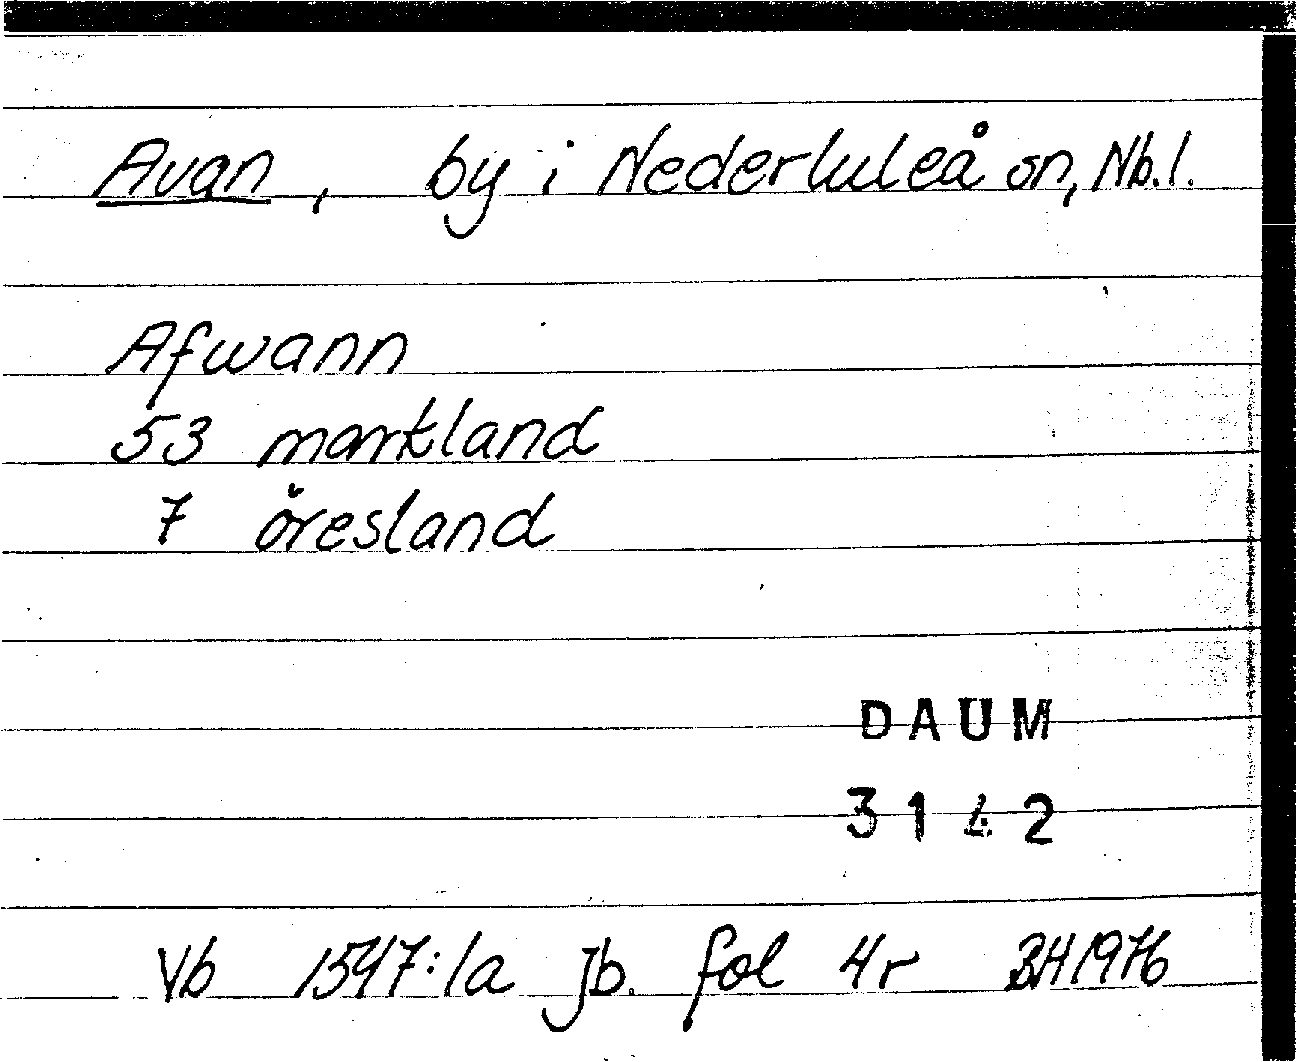 Avan, by i Nederluleå sn, Nb.l.
Afwann
53 markland
7 öresland
DAUM
3142
Vb 1547:1a Jb. fol 4r BH 1976